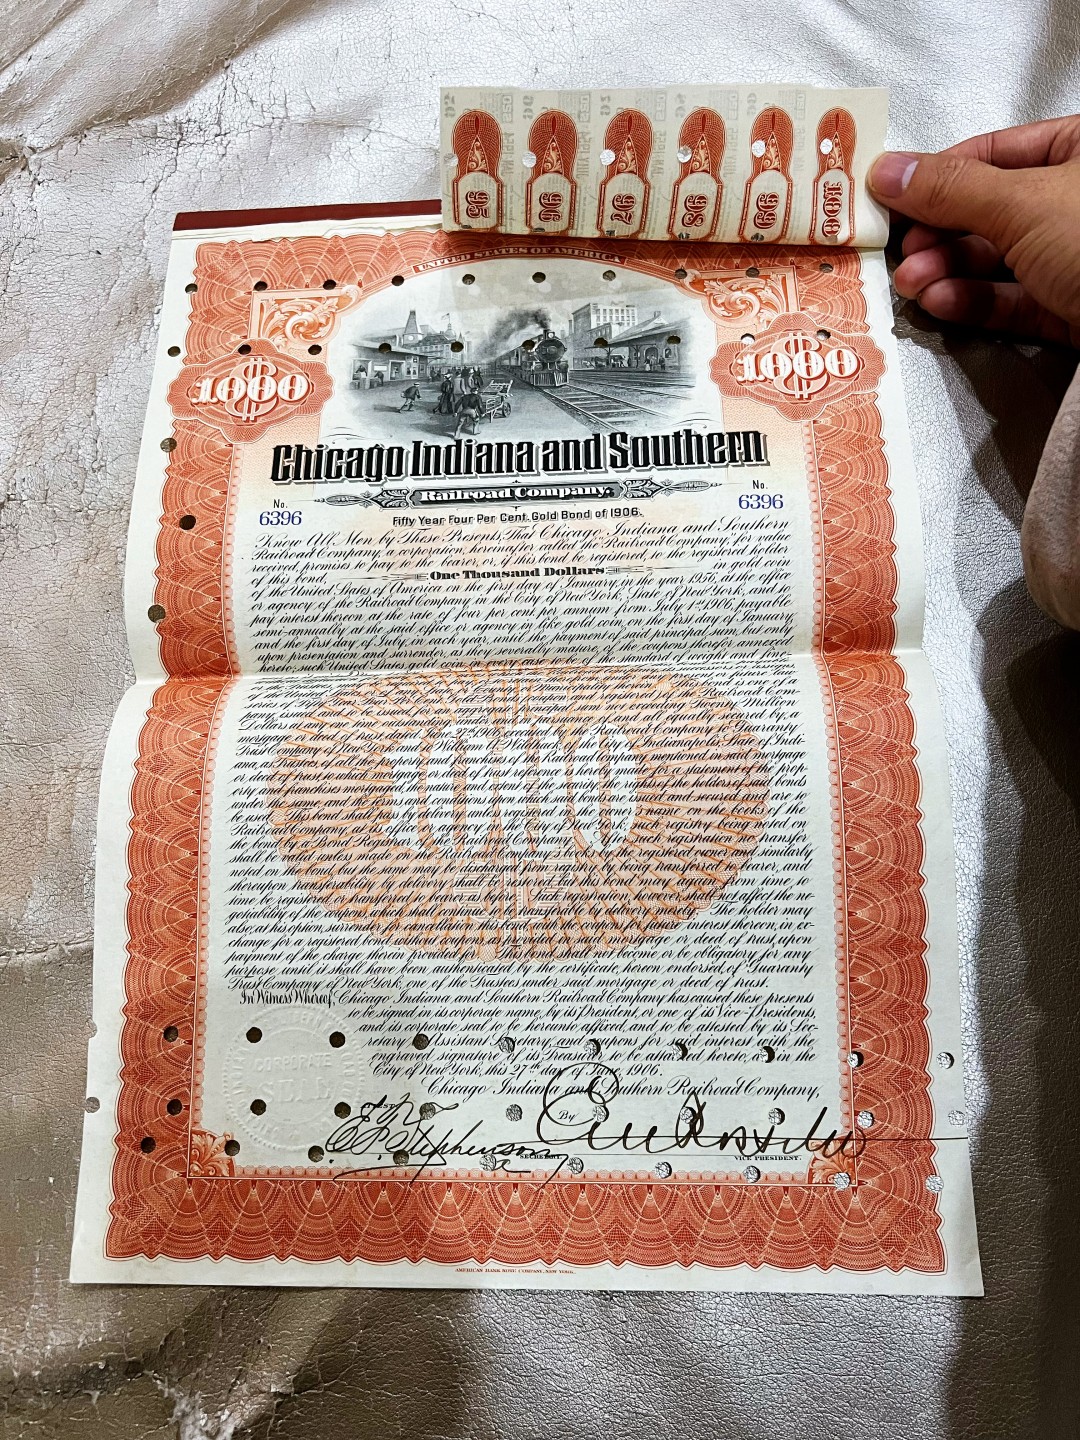 95 96 97 98 99 100
UNITED STATES OF AMERICA
$1000 $1000
Chicago Indiana and Southern
Railroad Company.
No. 6396
No. 6396
Fifty Year Four Per Cent. Gold Bond of 1906.
Know All Men by These Presents, That Chicago, Indiana and Southern
Railroad Company, a corporation, hereinafter called the Railroad Company, for value
received, promises to pay to the bearer, or, if this bond be registered, to the registered holder
of this bond, One Thousand Dollars in gold coin
of the United States of America on the first day of January, in the year 1956, at the office
or agency of the Railroad Company in the City of New York, State of New York, and to
pay interest thereon at the rate of four per cent. per annum from July 1st 1906, payable
semi-annually at the said office or agency in like gold coin, on the first day of January,
and the first day of July, in each year, until the payment of said principal sum, but only
upon presentation and surrender, as they severally mature, of the coupons therefor annexed
hereto; such United States gold coin in every case to be of the standard of weight and fine-
of the United States or of any State, County or Municipality therein. This bond is one of a
series of Fifty Year Four Per Cent. Gold Bonds, coupon and registered, of the Railroad Com-
pany, issued and to be issued for an aggregate principal sum not exceeding Twenty Million
Dollars at any one time outstanding under and in pursuance of, and all equally secured by, a
mortgage or deed of trust, dated June 27th 1906, executed by the Railroad Company to Guaranty
Trust Company of New York and William of the City of Indianapolis, State of Indi-
ana, as Trustees, of all the property and franchises of the Railroad Company mentioned in said mortgage
or deed of trust, to which mortgage or deed of trust reference is hereby made for a statement of the prop-
erty and franchises mortgaged, the nature and extent of the security, the rights of the holders of said bonds
under the same, and the terms and conditions upon which said bonds are issued and secured and are to
be used. This bond shall pass by delivery unless registered in the owner's name on the books of the
Railroad Company, at its office or agency in the City of New York, such registry being noted on
the bond by a Bond Registrar of the Railroad Company. After such registration no transfer
shall be valid unless made on the Railroad Company's books by the registered owner and similarly
noted on the bond, but the same may be discharged from registry by being transferred to bearer, and
thereupon transferability by delivery shall be restored; but this bond may again, from time to
time be registered or transferred to bearer as before. Such registration, however, shall not affect the ne-
gotiability of the coupons, which shall continue to be transferable by delivery merely. The holder may
also, at his option, surrender for cancellation this bond, with the coupons for future interest thereon, in ex-
change for a registered bond without coupons, as provided in said mortgage or deed of trust, upon
payment of the charge therein provided for. This bond shall not become or be obligatory for any
purpose until it shall have been authenticated by the certificate, hereon endorsed, of Guaranty
Trust Company of New York, one of the Trustees under said mortgage or deed of trust.
In Witness Whereof, Chicago, Indiana and Southern Railroad Company has caused these presents
to be signed in its corporate name, by its President, or one of its Vice-Presidents,
and its corporate seal to be hereunto affixed, and to be attested by its Sec-
retary or Assistant Secretary, and coupons for said interest with the
engraved signature of its Treasurer to be attached hereto, as in the
City of New York, this 27th day of June, 1906.
Chicago, Indiana and Southern Railroad Company,
CORPORATE
SEAL
By
SECRETARY.
VICE PRESIDENT.
AMERICAN BANK NOTE COMPANY, NEW YORK.